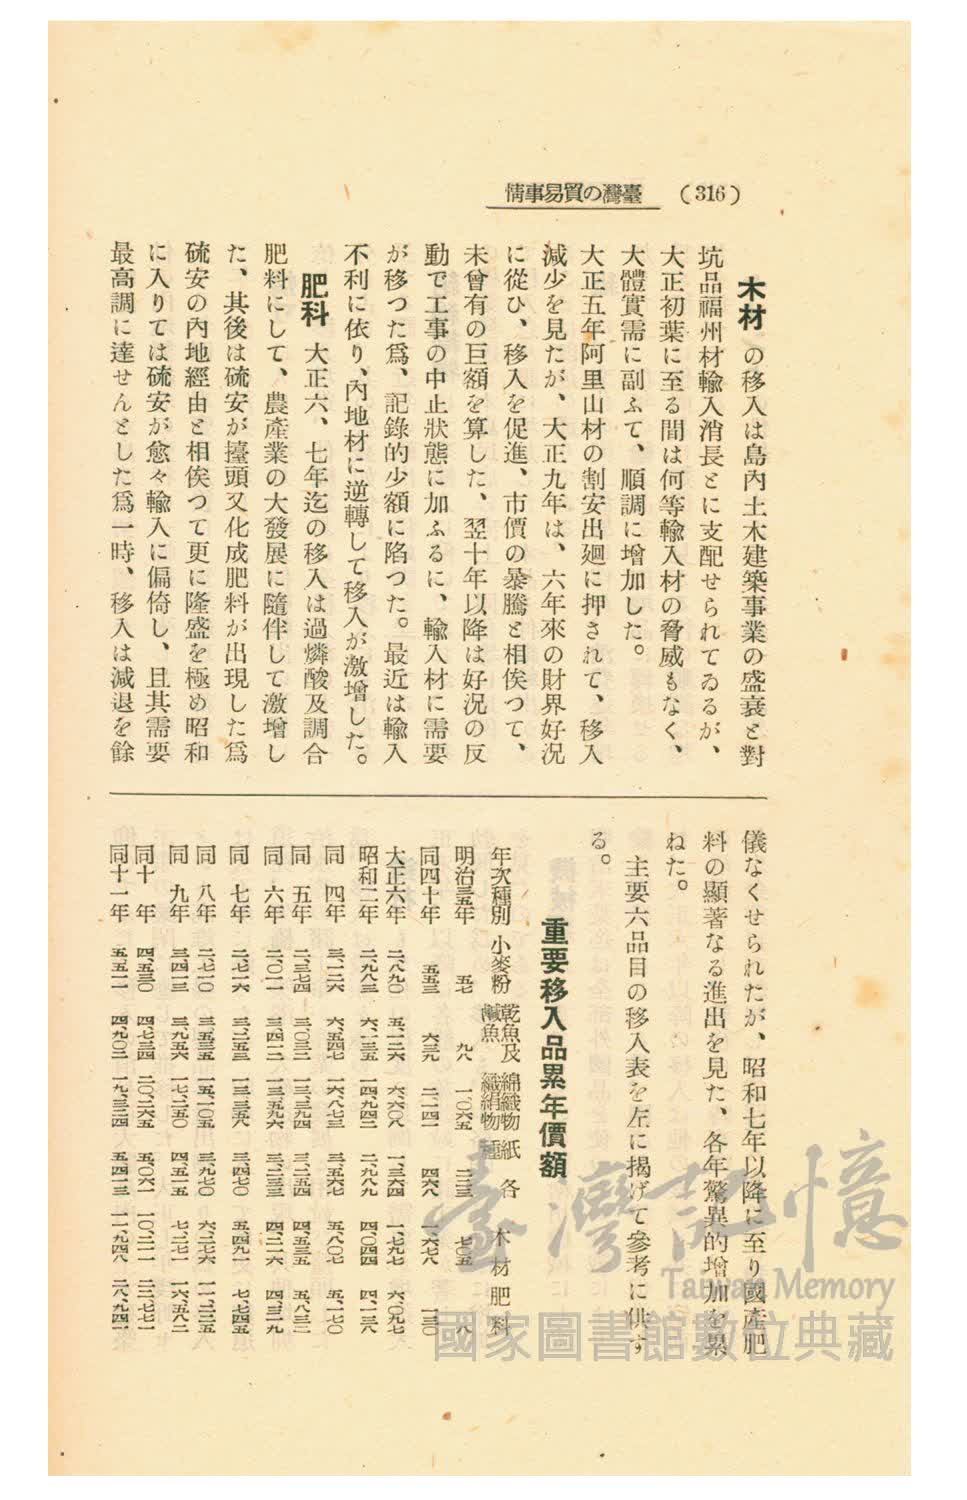 (316) 臺灣の貿易事情
木材 の移入は島內土木建築事業の盛衰と對
坑品福州材輸入消長とに支配せられてゐるが、
大正初葉に至る間は何等輸入材の脅威もなく、
大體實需に副ふて、順調に增加した。
大正五年阿里山材の割安出廻に押されて、移入
減少を見たが、大正九年は、六年來の財界好況
に從ひ、移入を促進、市價の暴騰と相俟つて、
未曾有の巨額を算した、翌十年以降は好況の反
動で工事の中止狀態に加ふるに、輸入材に需要
が移つた爲、記錄的少額に陷つた。最近は輸入
不利に依り、內地材に逆轉して移入が激增した。
肥料 大正六、七年迄の移入は過燐酸及調合
肥料にして、農產業の大發展に隨伴して激增し
た、其後は硫安が擡頭又化成肥料が出現した爲
硫安の內地經由と相俟つて更に隆盛を極め昭和
に入りては硫安が愈々輸入に偏倚し、且其需要
最高調に達せんとした爲一時、移入は減退を餘
儀なくせられたが、昭和七年以降に至り國產肥
料の顯著なる進出を見た、各年驚異的增加を累
ねた。
主要六品目の移入表を左に揭げて參考に供す
る。
重要移入品累年價額
年次種別 小麥粉 乾魚及鹹魚 綿織物絹織物 各種紙 木材 肥料
明治三五年 五七 九八 一、〇六五 二三三 七〇五 八
同四十年 五五三 六三九 二、一四一 四六八 一、六七八 一三〇
大正六年 二、八九〇 五、一二六 六、六〇八 一、三六四 一、七九七 六、〇九七
昭和二年 二、九八三 六、一三五 一四、九四二 二、九八九 四、〇四四 四、一三八
同 四年 三、一二六 六、五四七 一六、八七三 三、五六七 五、八〇七 五、一七〇
同 五年 二、三七四 三、〇三二 一三、三九四 三、二五四 四、五三五 五、八三二
同 六年 二、〇一一 三、四一二 一三、五九六 三、二三三 四、二一六 四、三二九
同 七年 二、七一六 三、二五三 一三、三五八 三、四七〇 五、四九一 七、七四五
同 八年 二、七二〇 三、五三五 一五、一〇五 三、九七〇 六、二七六 一一、二二五
同 九年 三、四一三 三、九五六 一七、二五〇 四、五一五 七、二七一 一六、五八二
同十 年 四、五三〇 四、七三四 二〇、二六五 五、〇六一 一〇、二一一 二三、七七一
同十一年 五、五一一 四、九〇二 一九、三二四 五、四一三 一一、九四八 二八、九四一
臺灣記憶
Taiwan Memory
國家圖書館數位典藏